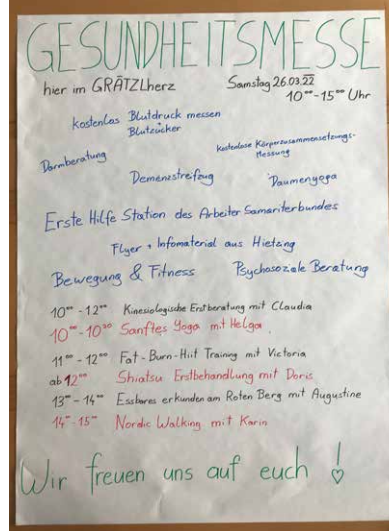 GESUNDHEITSMESSE
hier im GRÄTZLherz Samstag 26.03.22
10⁰⁰-15⁰⁰ Uhr
kostenlos Blutdruck messen
Blutzucker
kostenlose Körperzusammensetzungs-
Messung
Darmberatung
Demenzstreifzug Daumenyoga
Erste Hilfe Station des Arbeiter Samariterbundes
Flyer + Infomaterial aus Hietzing
Bewegung & Fitness Psychosoziale Beratung
10⁰⁰ - 12⁰⁰ Kinesiologische Erstberatung mit Claudia
10⁰⁰ - 10³⁰ Sanftes Yoga mit Helga
11⁰⁰ - 12⁰⁰ Fat-Burn-Hiit Training mit Victoria
ab 12⁰⁰ Shiatsu Erstbehandlung mit Doris
13⁰⁰ - 14⁰⁰ Essbares erkunden am Roten Berg mit Augustine
14⁰⁰ - 15⁰⁰ Nordic Walking mit Karin
Wir freuen uns auf euch !